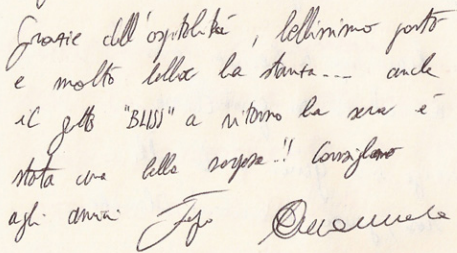 Grazie dell'ospitalità, bellissimo posto
e molto bella la stanza... anche
il "BLISS" a ritorno la sera è
stata una bella sorpresa!! Consigliamo
agli amici